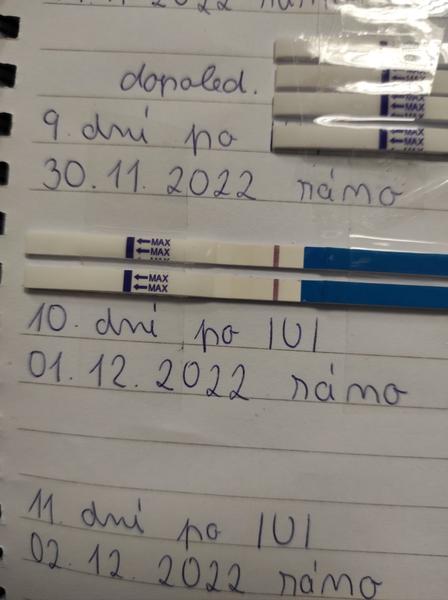 2022
dopoled.
MAX
MAX
MAX
9. dní po
30.11.2022 ráno
←MAX
←MAX
←MAX
←MAX
10. dní po IUI
01.12.2022 ráno
11. dní po IUI
02.12.2022 ráno